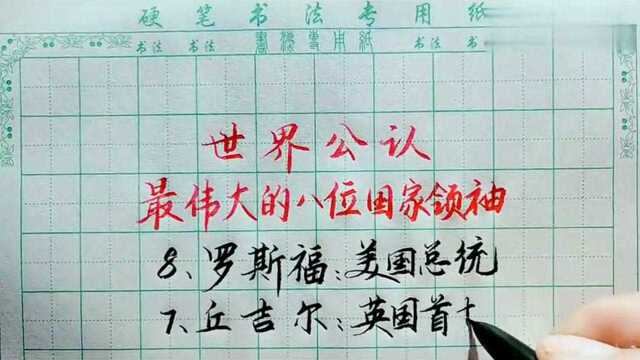 硬笔书法专用纸
书法 书法 書法專用紙 书法
世界公认
最伟大的八位国家领袖
8、罗斯福：美国总统
7、丘吉尔：英国首